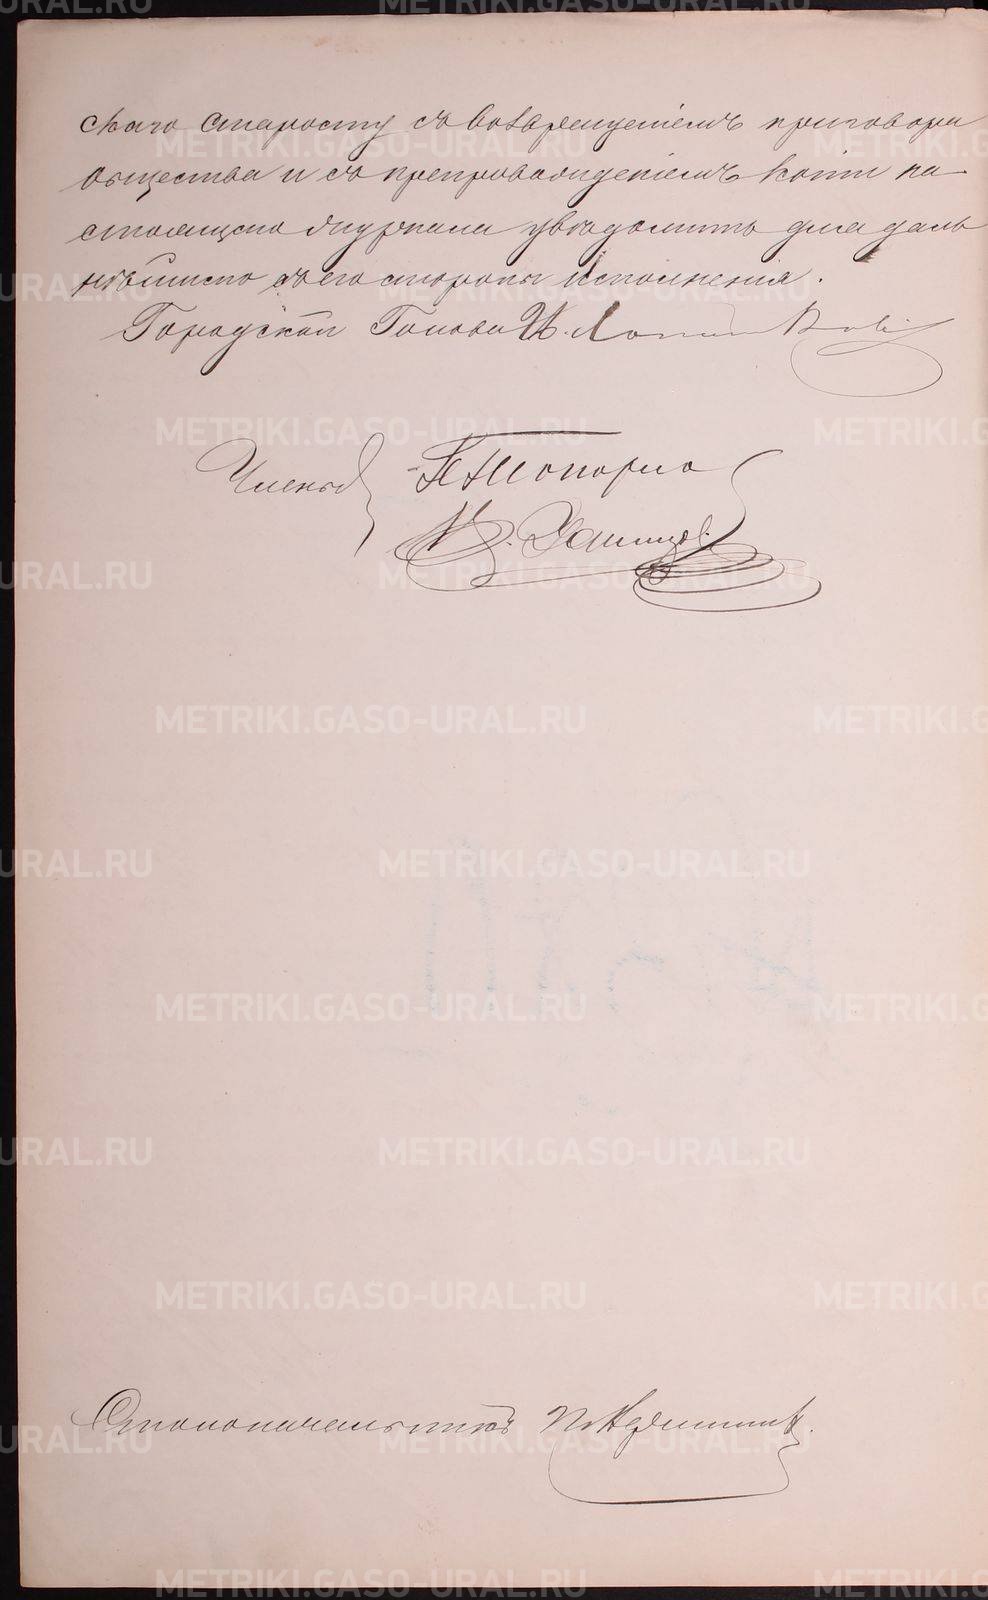 скаго старосту съ возвращеніемъ приговора
общества и съ препровожденіемъ копіи на-
стоящаго журнала увѣдомить для даль
нѣйшаго съ его стороны исполненія.
Городской Голова И.
Члены
Столоначальникъ
METRIKI.GASO-URAL.RU